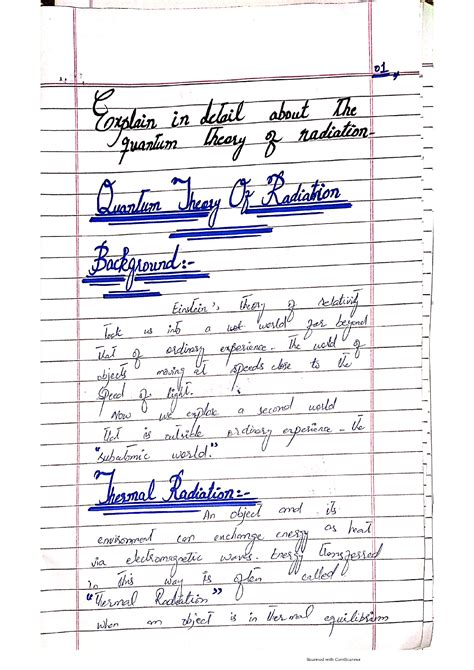 01
Explain in detail about the
quantum theory of radiation-
Quantum Theory Of Radiation
Background:-
Einstein's theory of relativity
Took us into a world far beyond
that of ordinary experience - The world of
objects moving at speeds close to the
speed of light.
Now we explore a second world
that is outside ordinary experience - the
"subatomic world."
Thermal Radiation:-
An object and its
environment can exchange energy as heat
via electromagnetic waves. Energy transferred
in this way is often called
"Thermal Radiation"
when an object is in thermal equilibrium
Scanned with CamScanner